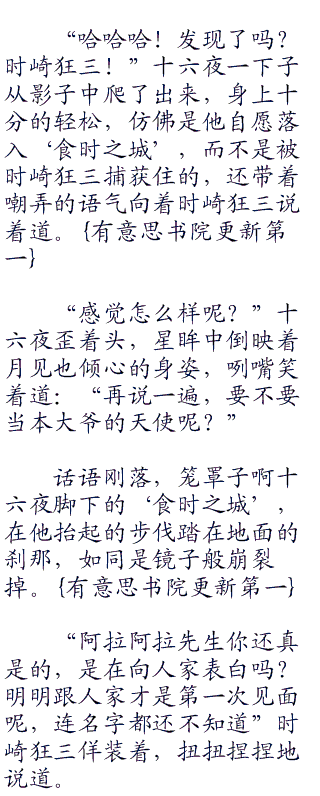 “哈哈哈！发现了吗？
时崎狂三！”十六夜一下子
从影子中爬了出来，身上十
分的轻松，仿佛是他自愿落
入‘食时之城’，而不是被
时崎狂三捕获住的，还带着
嘲弄的语气向着时崎狂三说
着道。{有意思书院更新第
一}
“感觉怎么样呢？”十
六夜歪着头，星眸中倒映着
月见也倾心的身姿，咧嘴笑
着道：“再说一遍，要不要
当本大爷的天使呢？”
话语刚落，笼罩子啊十
六夜脚下的‘食时之城’，
在他抬起的步伐踏在地面的
刹那，如同是镜子般崩裂
掉。{有意思书院更新第一}
“阿拉阿拉先生你还真
是的，是在向人家表白吗？
明明跟人家才是第一次见面
呢，连名字都还不知道”时
崎狂三佯装着，扭扭捏捏地
说道。